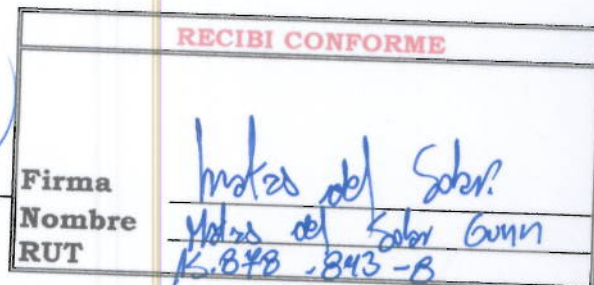 RECIBI CONFORME
Firma Matias del Solar
Nombre Matias del Solar Gunn
RUT 15.878.843-8